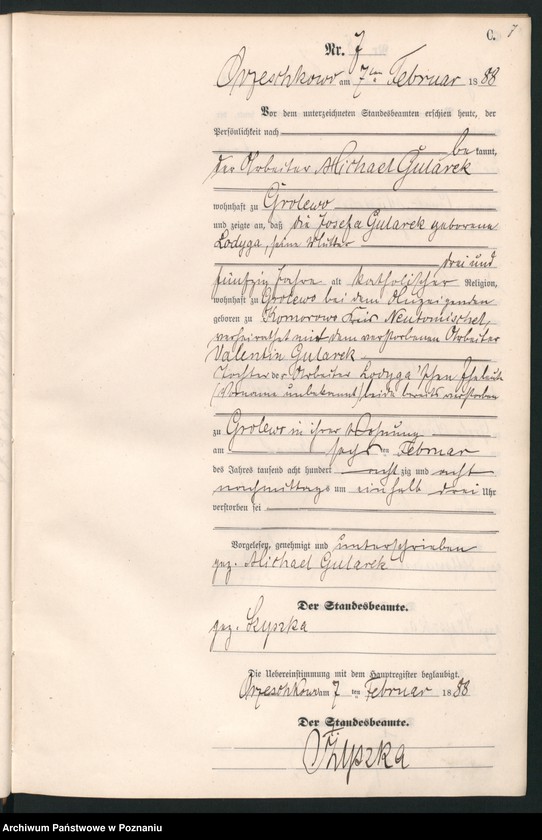 C. 7
Nr. 7
Orzeschkowo am 7ten Februar 1888
Vor dem unterzeichneten Standesbeamten erschien heute, der
Persönlichkeit nach
bekannt,
der Arbeiter Michael Gularek
wohnhaft zu Grolewo
und zeigte an, daß die Josefa Gularek geborene
Lodyga, seine Mutter
drei und
fünfzig Jahre alt katholischer Religion,
wohnhaft zu Grolewo bei dem Anzeigenden
geboren zu Komorowo Kreis Neutomischel,
verheirathet mit dem verstorbenen Arbeiter
Valentin Gularek
Tochter der Arbeiter Lodyga'schen Eheleute
(Vorname unbekannt) beide bereits verstorben
zu Grolewo in ihrer Wohnung
am sechsten Februar
des Jahres tausend acht hundert achtzig und acht
nachmittags um einhalb drei Uhr
verstorben sei
Vorgelesen, genehmigt und unterschrieben
gez. Michael Gularek
Der Standesbeamte.
gez. Szyszka
Die Uebereinstimmung mit dem Hauptregister beglaubigt.
Orzeschkowo am 7ten Februar 1888
Der Standesbeamte.
Szyszka
Archiwum Państwowe w Poznaniu